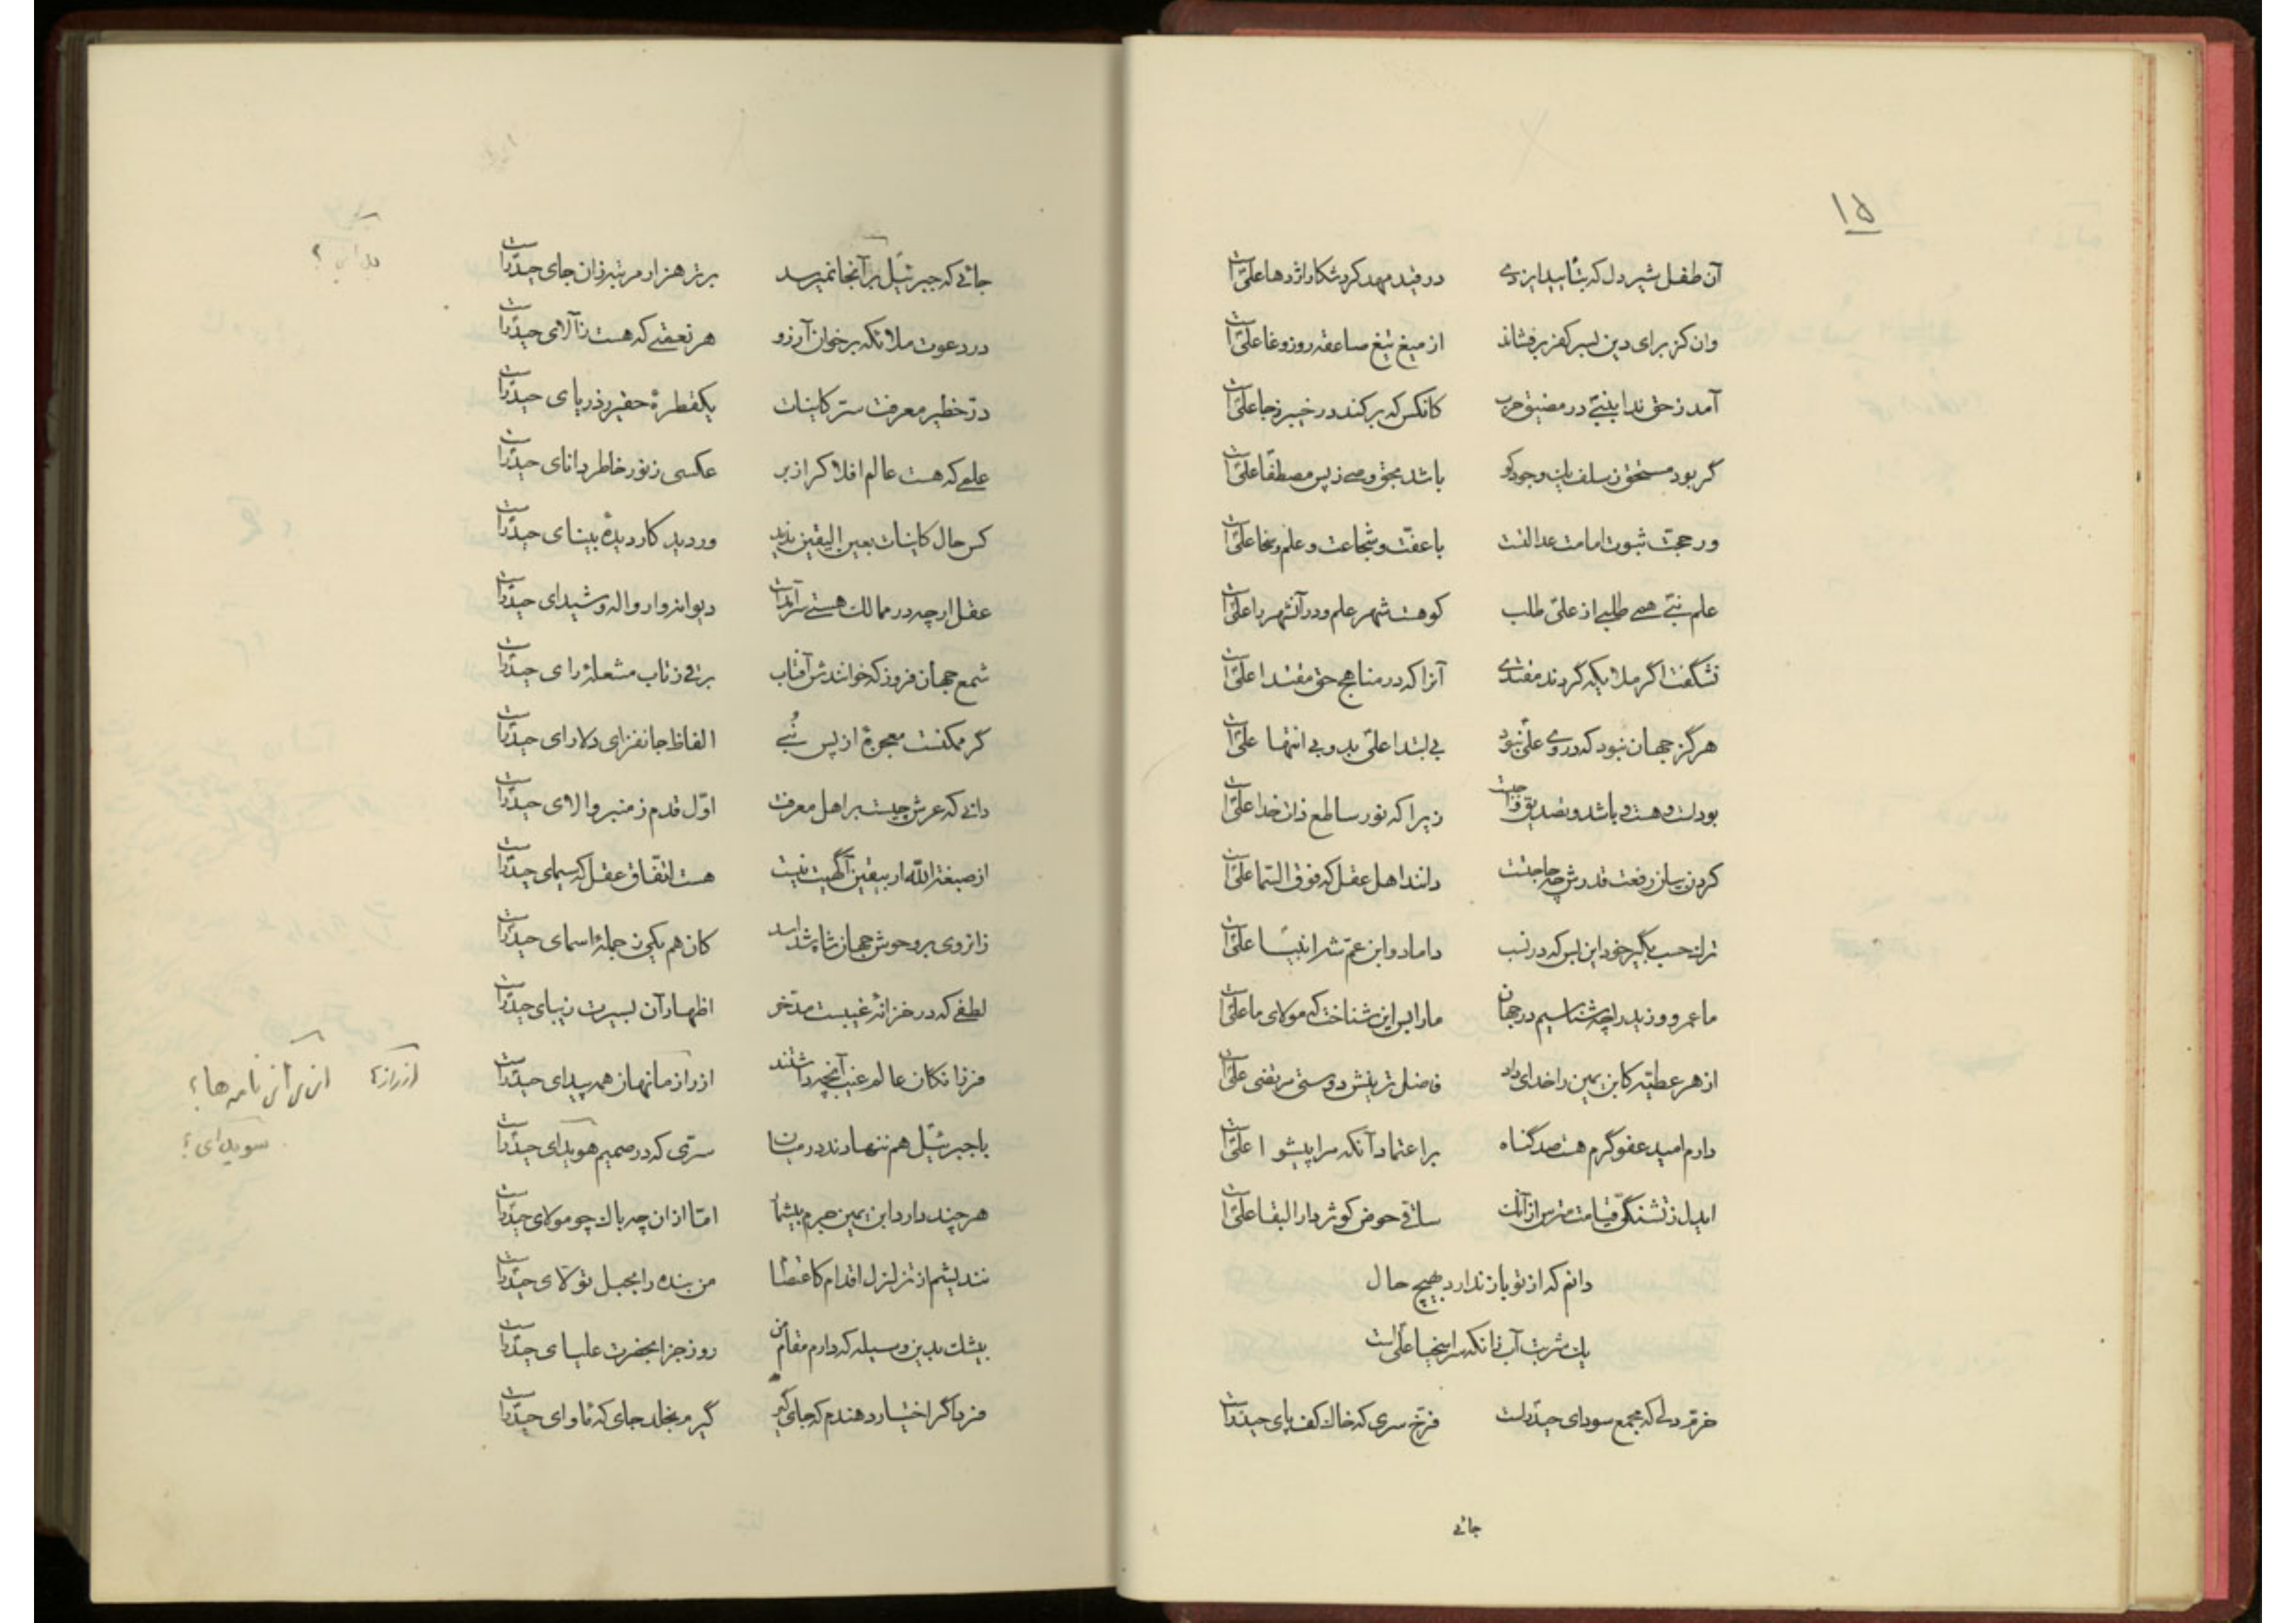 ۱۵
آن طفل شیردل که بتأیید ایزدی در قید مهد کرد شکار اژدها علیّ است
وان کز برای دین بسر کفر برفشاند از میغ تیغ صاعقه روز وغا علیّ است
آمد ز حق ندا بنبیّ در مضیق حرب کانکس که برکند در خیبر ز جا علیّ است
گر بود مستحق ز سلف یک وجود کو باشد بحق وصی ز پس مصطفا علیّ است
ور حجت ثبوت امامت عدالتست با عفّت و شجاعت و علم و سخا علیّ است
علم نبیّ همی طلبی از علیّ طلب کو هست شهر علم و در آنشهر را علیّ است
نشگفت اگر ملایکه گردند مقتدی آنرا که در مناهج حق مقتدا علیّ است
هرگز جهان نبود که در وی علی نبود بی ابتدا علیّ بد و بی انتها علیّ است
بودست و هست و باشد و تصدیق واجبست زیرا که نور ساطع ذات خدا علیّ است
کردن بیان رفعت قدرش چه حاجتست دانند اهل عقل که فوق السّما علیّ است
ترک حسب بگیر خود این بس که در نسب داماد و ابن عمّ شه انبیا علیّ است
ما عمرو و زید را چه شناسیم در جهان ما را بس این شناخت که مولای ما علیّ است
از هر عطیّه کابن یمین را خدای داد فاضل‌ترینش دوستی مرتضی علیّ است
دارم امید عفو گرم هست صد گناه بر اعتماد آنکه مرا پیشوا علیّ است
ایدل ز تشنگیّ قیامت مترس از آنک ساقی حوض کوثر دار البقا علیّ است
دانم که از تو باز ندارد بهیچ حال
یک شربت آب زانکه سر اسخیا علیّ است
خرّم دلی که مجمع سودای حیدرست فرّخ سری که خاک کف پای حیدرست
جائی
جائی که جبرئیل بر آنجا نمیرسد برتر هزار مرتبه زان جای حیدرست
در دعوت ملائکه بر خوان آرزو هر نعمتی که هست ز آلای حیدرست
در خطیر معرفت سرّ کاینات یکقطرهٔ حقیر ز دریای حیدرست
علمی که هست عالم افلاک را ز بر عکسی ز نور خاطر دانای حیدرست
کس حال کاینات بعین الیقین ندید ور دید کار دیدهٔ بینای حیدرست
عقل ارچه در ممالک هستی سرآمدست دیوانه وار واله و شیدای حیدرست
شمع جهان فروز که خوانندش آفتاب برقی ز تاب مشعلهٔ رای حیدرست
گر ممکنست معجزهٔ از پس نُبی الفاظ جانفزای دلارای حیدرست
دانی که عرش چیست بر اهل معرفت اوّل قدم ز منبر والای حیدرست
از صبغة اللّه ار بیقین آگهیت نیست هست اتفّاق عقل که سیمای حیدرست
زانروی بر وحوش جهان شاه شد اسد کان هم یکی ز جملهٔ اسمای حیدرست
لطفی که در خزانهٔ غیبست مدّخر اظهار آن بسیرت زیبای حیدرست
فرزانگان عالم غیب آنچه داشتند از راز ما نهان همه پیدای حیدرست
با جبرئیل هم ننهادند در میان سرّی که در صمیم هویدای حیدرست
هر چند دارد ابن یمین جرم بیشمار امّا از ان چه باک چو مولای حیدرست
نندیشم از تزلزل اقدام کاعتصام من بنده را بحبل تولّای حیدرست
بیشک بدین وسیله که دارم مقام من روز جزا بحضرت علیای حیدرست
فردا گر اختیار دهندم که جای گیر گیرم بخلد جای که مأوای حیدرست
از راز؟
سویدای؟